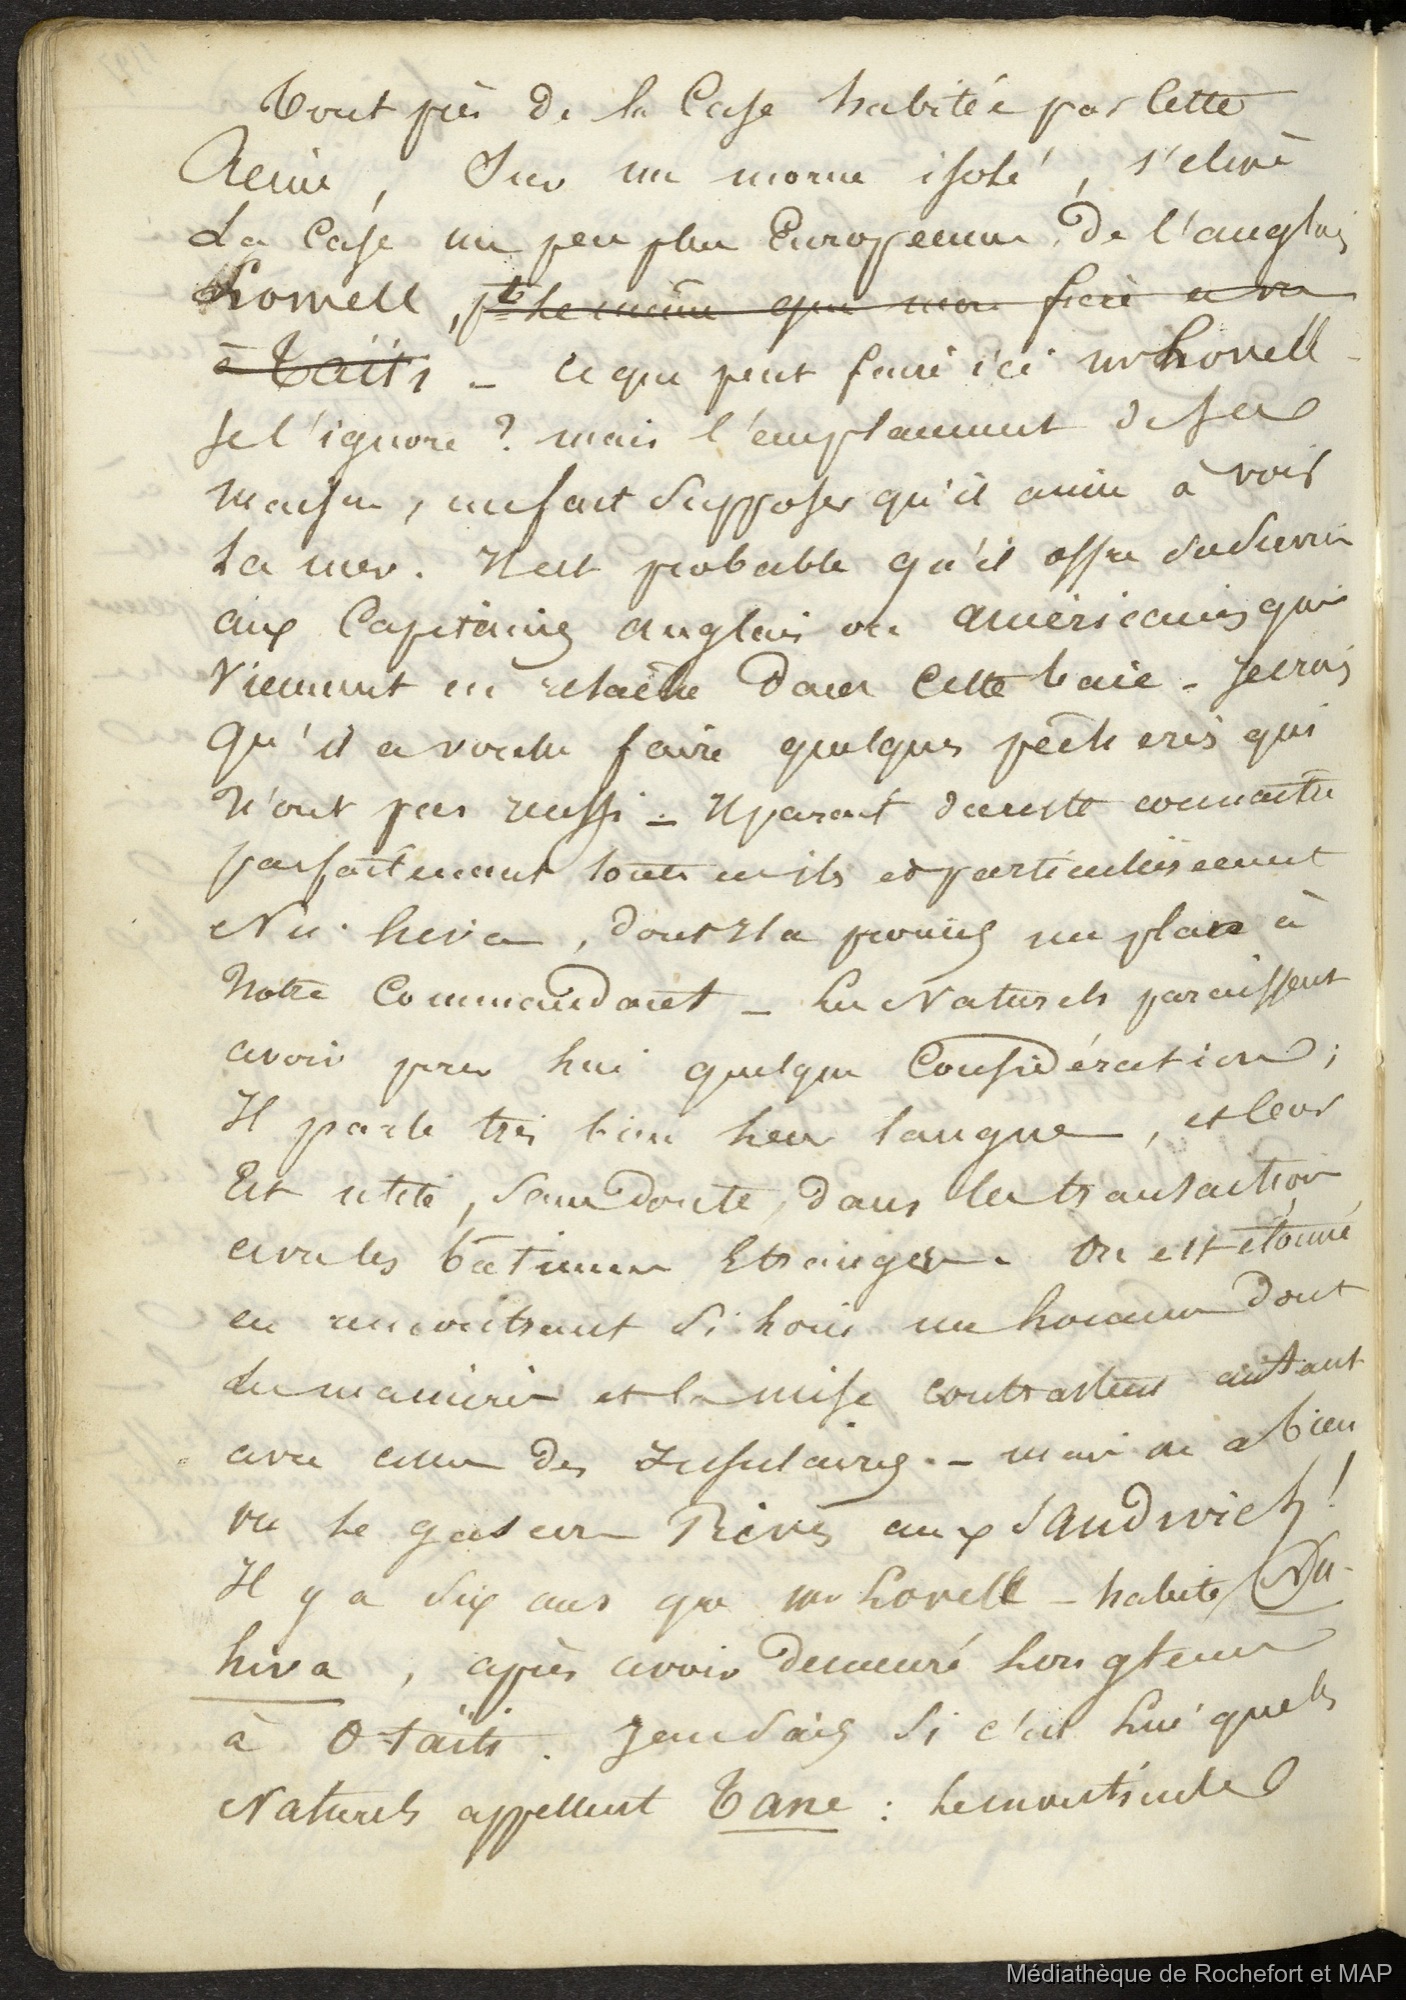 Tout près de la Case habitée par Cette
Reine, Sur un morne isolé, s'elève
La Case un peu plus Européenne de l'anglais
Lowell, pt le même que mon frère a vu
à Taïti — Ce que peut faire ici mr Lovell —
Je l'ignore ? mais l'emplacement de Sa
maison, me fait Supposer qu'il aime à voir
La mer. Il est probable qu'il offre Ses Services
aux Capitaines anglais ou américains qui
Viennent en relâche dans Cette baie — Je crois
Qu'il a voulu faire quelques pêcheries qui
N'ont pas reussi — Il parait du reste connaître
parfaitement toutes ces iles et particulièrement
Nu-hiva, dont Il a promis un plan à
Notre Commandant — Les Naturels paraissent
avoir pour Lui quelque Considération ;
Il parle très bien Leur langue, et leur
Est utile, Sans Doute, dans les transactions
avec les bâtimens Etrangers. On est étonné
en rencontrant Si Loin un homme dont
Les manières et la mise contrastent autant
avec celles des Insulaires. — mais on a bien
vu Le gascon Rives aux Sandwich !
Il y a dix ans que mr Lovell — habite Nu-
hiva, après avoir demeuré Longtems
à O-taïti. Je ne Sais Si c'est Lui que les
Naturels appellent Tane : Le monticule